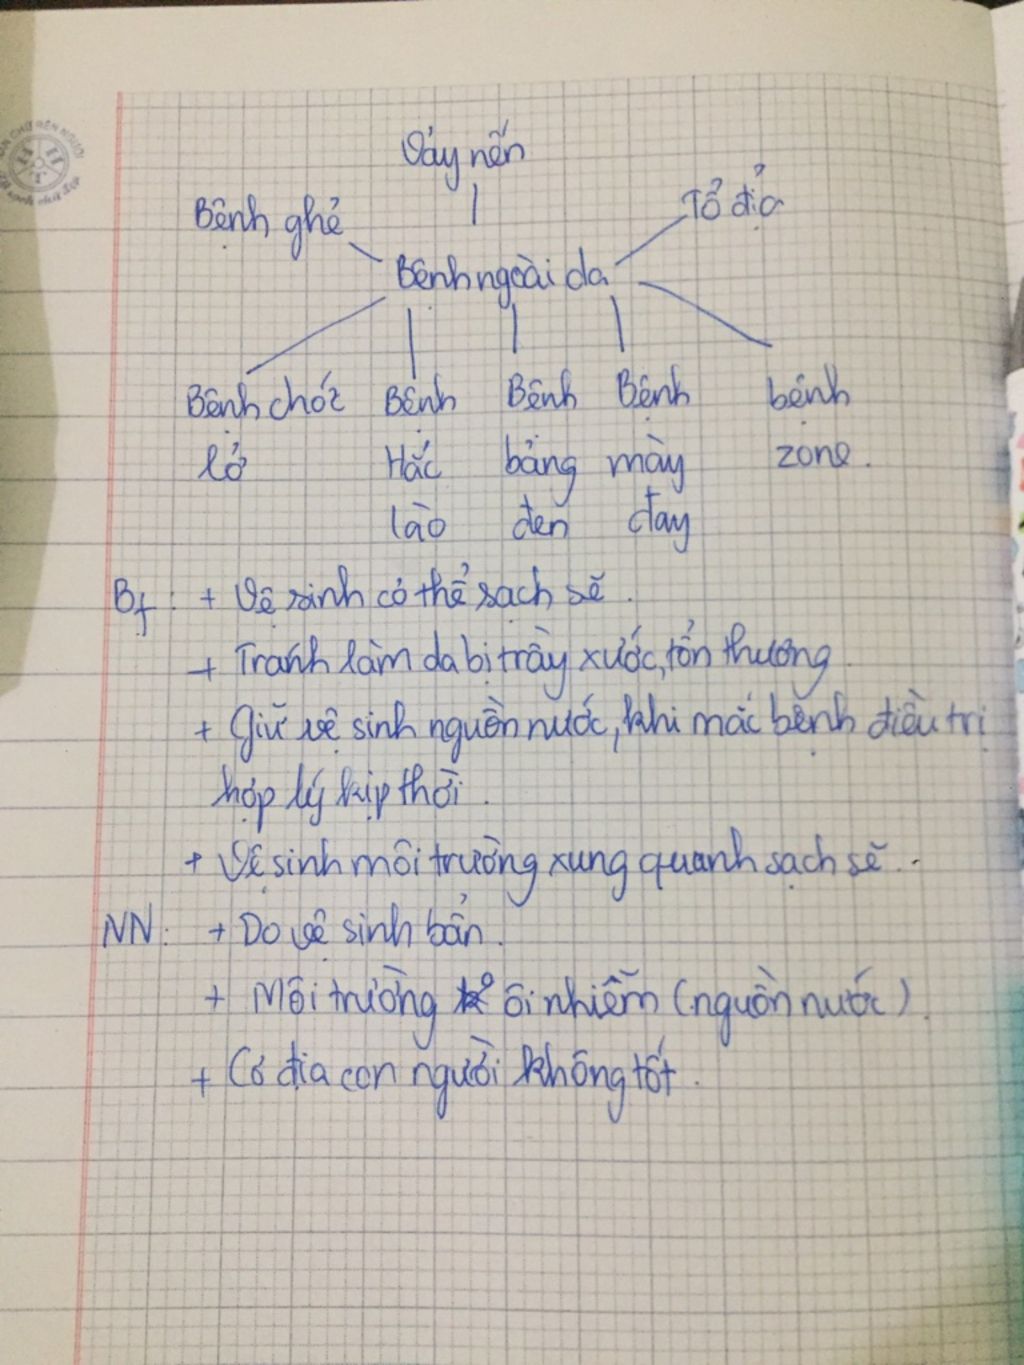 Vảy nến
Bệnh ghẻ
Tổ đỉa
Bệnh ngoài da
Bệnh chốc Bệnh Bệnh Bệnh bệnh
lở Hắc bảng mày zone.
lào đen đay
Bf: + Vệ sinh cỏ thể sạch sẽ.
+ Tránh làm da bị trầy xước, tổn thương
+ Giữ vệ sinh nguồn nước, khi mắc bệnh điều trị
hợp lý kịp thời.
+ Vệ sinh môi trường xung quanh sạch sẽ.
NN: + Do vệ sinh bẩn.
+ Môi trường ôi nhiễm (nguồn nước).
+ Cơ địa con người không tốt.